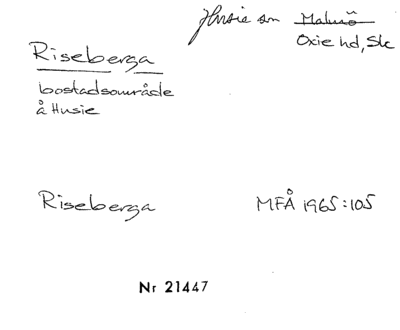 Husie sn Malmö
Oxie hd, Sk
Riseberga
bostadsområde
å Husie
Riseberga MFÅ 1965:105
Nr 21447